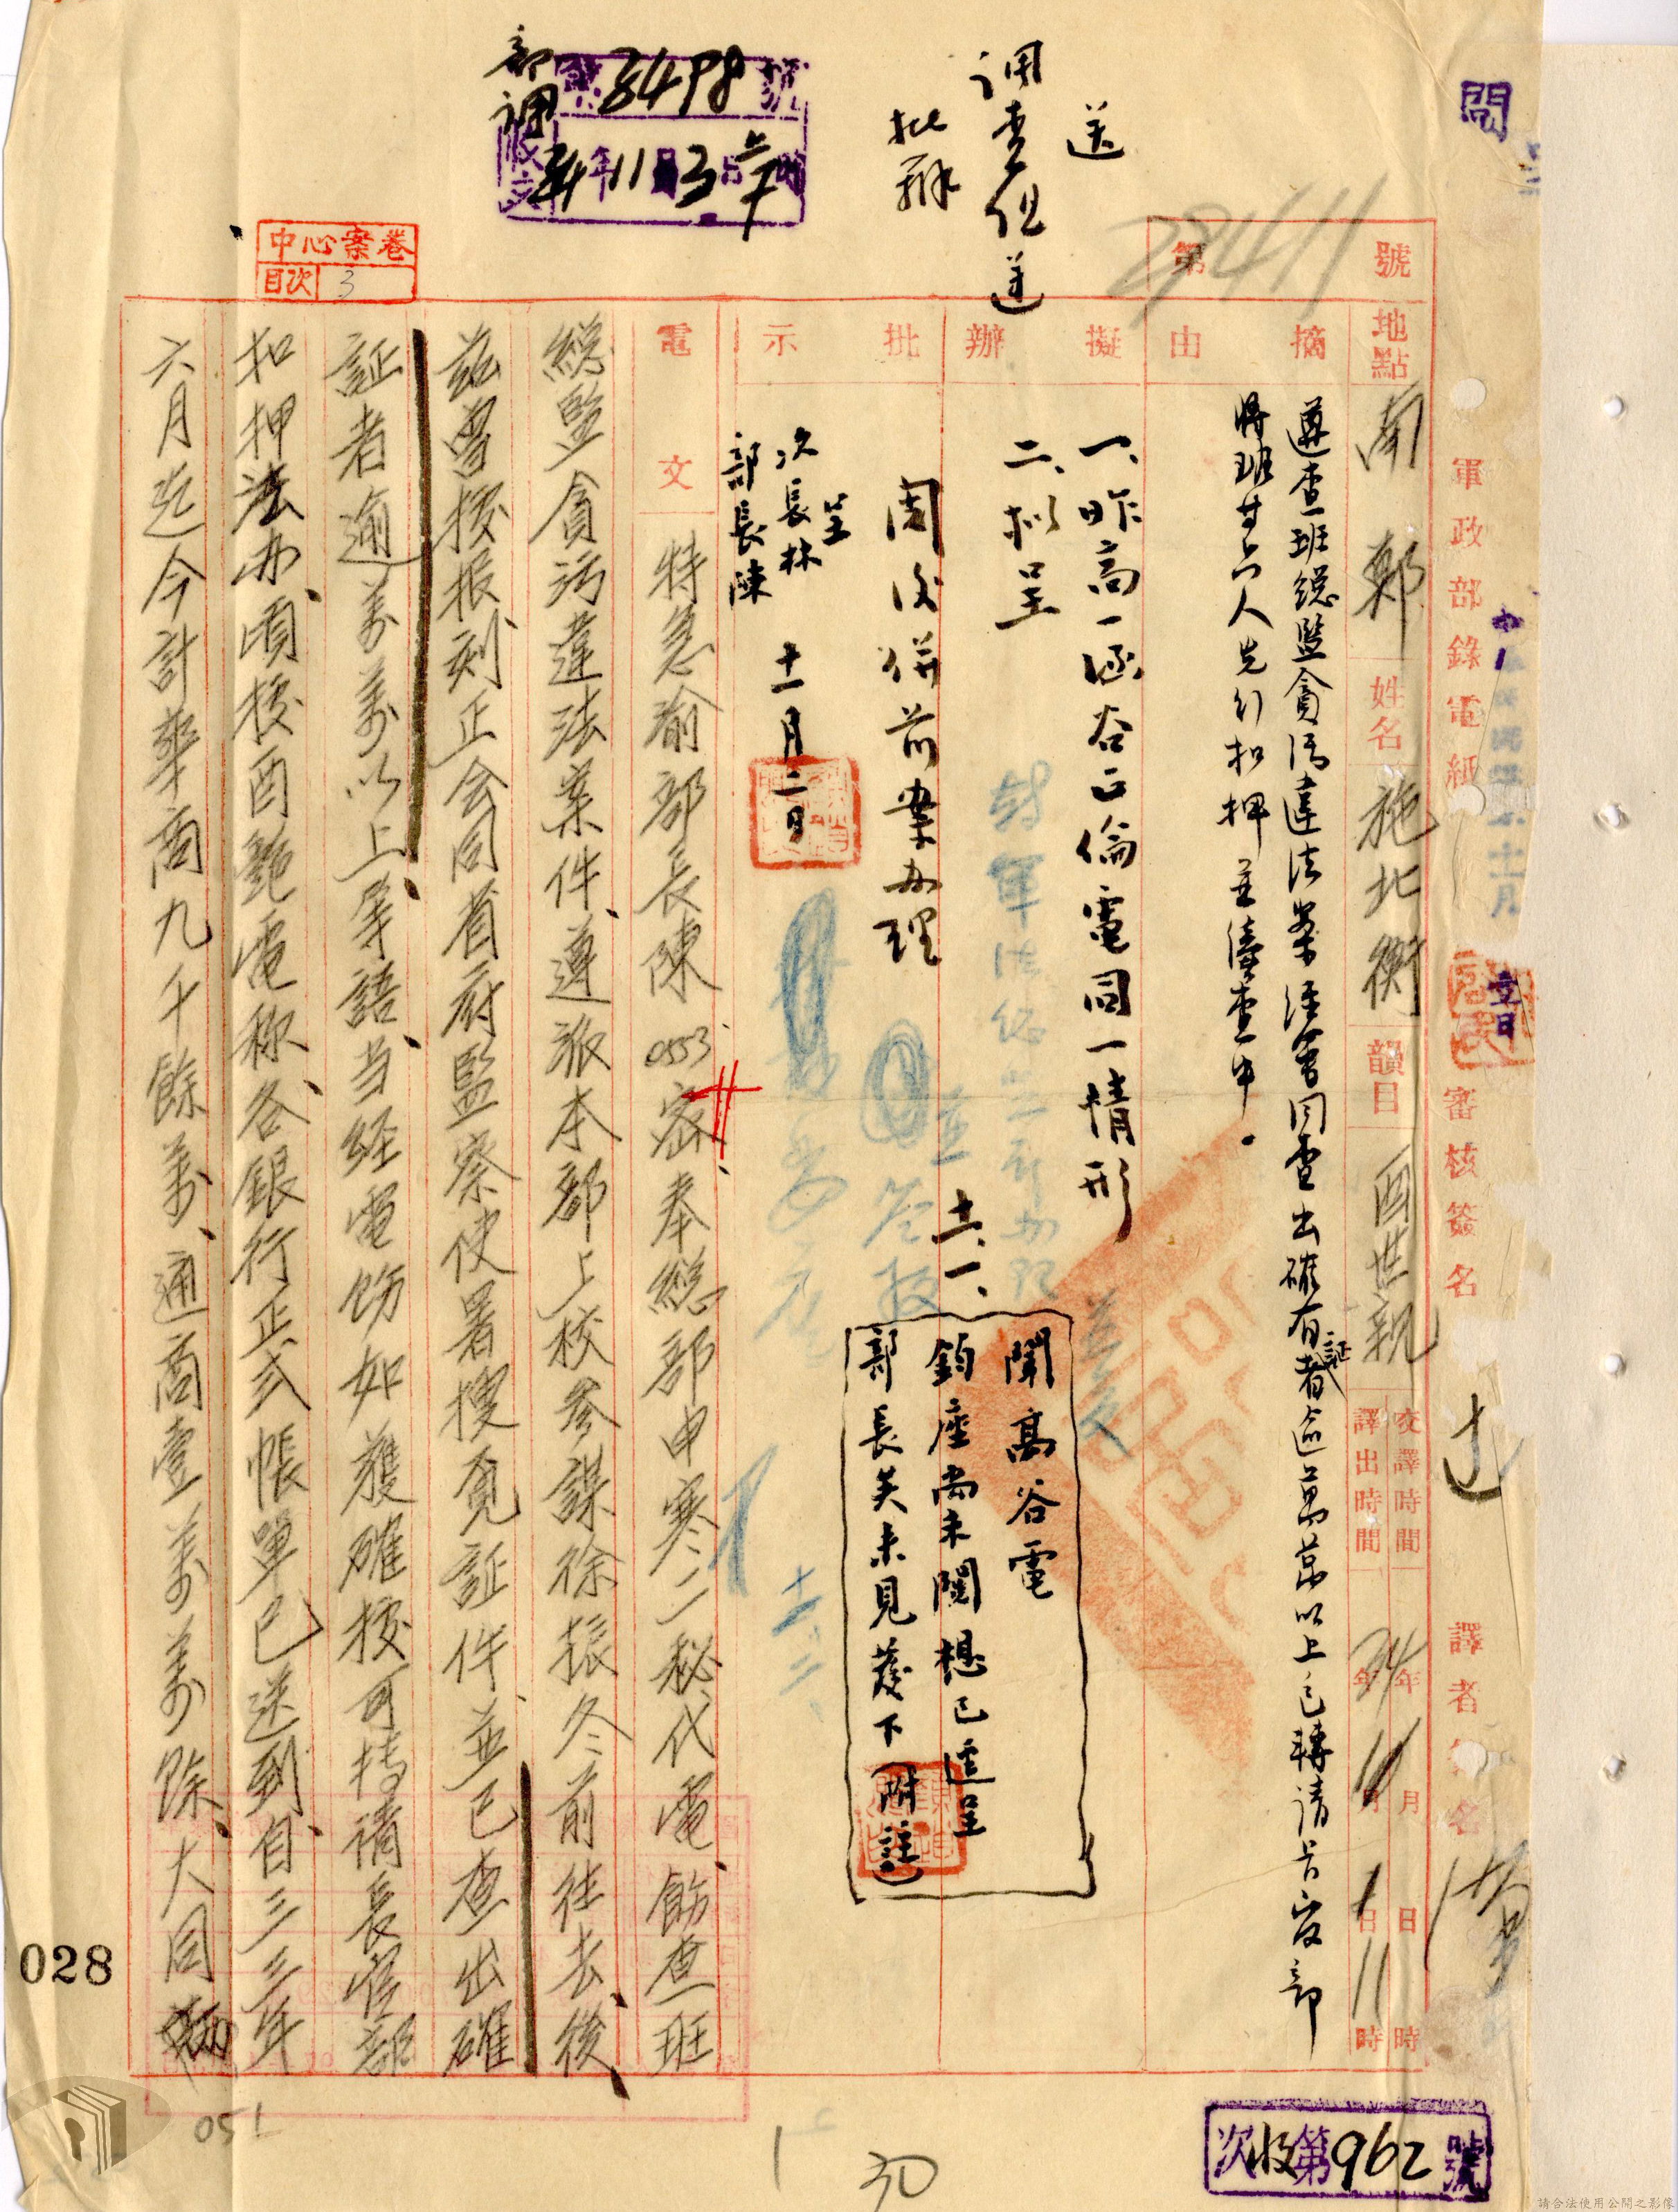 軍政部錄電紙
審核簽名
譯者簽名
第29411號
地點
南鄭
姓名
施北衡
韻目
酉世親
交譯時間
譯出時間
34年
月
日11時
摘由
遵查班總監貪污違法案經會同查出確有證者逾萬萬以上已轉請長官部
將班等六人先行扣押並續查中。
擬辦
一、昨高一涵谷正倫電同一情形
二、拟呈
閱後併前案办理
十一、一、
批示
呈
次長林
部長陳
十一月二日
聞高谷電
鈞座尚未閱想已逕呈
部長矣未見發下
附註
送
調查組并
批辦
部調
8498號
收文
34年11月3日上午時
中心案卷
目次 3
電文
特急渝部長陳0553密奉總部申寒二秘代電、飭查班
總監貪污違法案件、遵派本部上校參謀徐振冬前往去後、
茲曾接报刻正会同省府監察使署搜覓証件、並已查出確
証者逾萬萬以上等語、当経電飭如獲確按可转請長官部
扣押法办、頃接酉艷電称、各銀行正式帳單已送到、自三三年
六月迄今計華商九千餘萬、通商壹萬萬餘、大同
028
051
30
次收第962號
請合法使用公開之影像